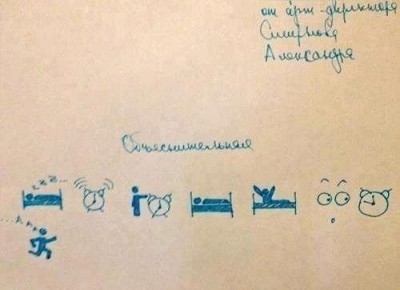 от арт-директора
Смирнова
Александра
Объяснительная
zzz...
...AAA